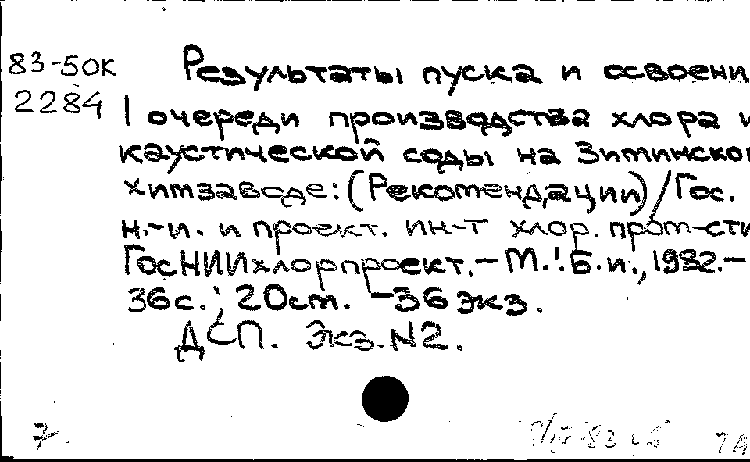 83-50К
2284
Результаты пуска и освоени
I очереди производства хлора и
каустической соды на Зиминском
химзаводе: (Рекомендации) / Гос.
н.-и. и проект. ин-т хлор. пром-сти
ГосНИИхлорпроект. – М.: Б.и., 1982. –
36 с.; 20 см. – 36 экз.
ДСП. Экз. N2.
7.